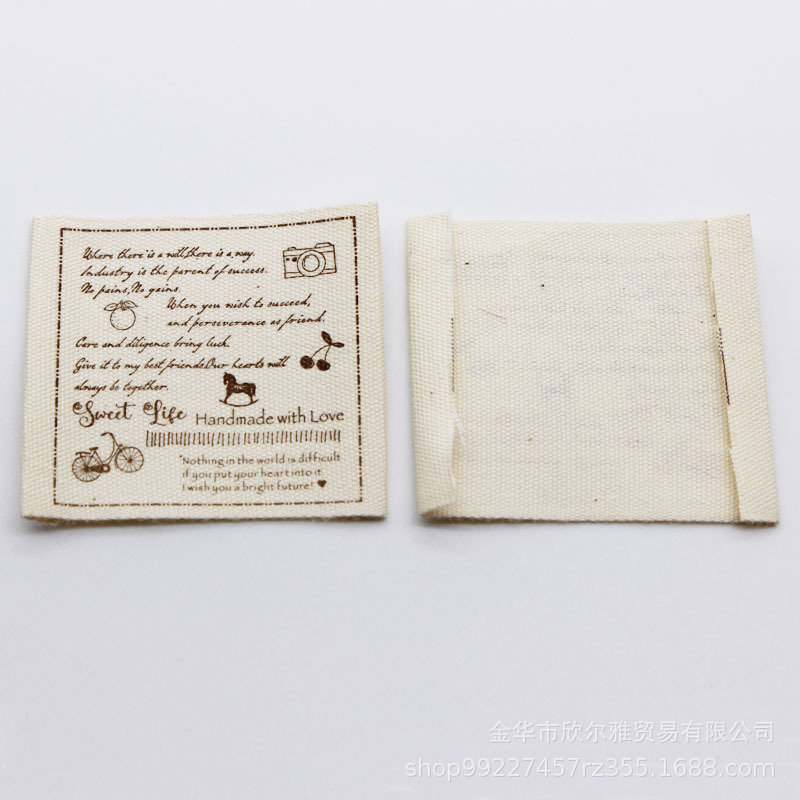 Where there is a will,there is a way.
Industry is the parent of success.
No pains,No gains.
When you wish to succeed,
and perseverance as friend.
Care and diligence bring luck.
Give it to my best friends.Our hearts will
always be together.
Sweet Life
Handmade with Love
"Nothing in the world is difficult
if you put your heart into it
I wish you a bright future!
金华市欣尔雅贸易有限公司
shop99227457rz355.1688.com